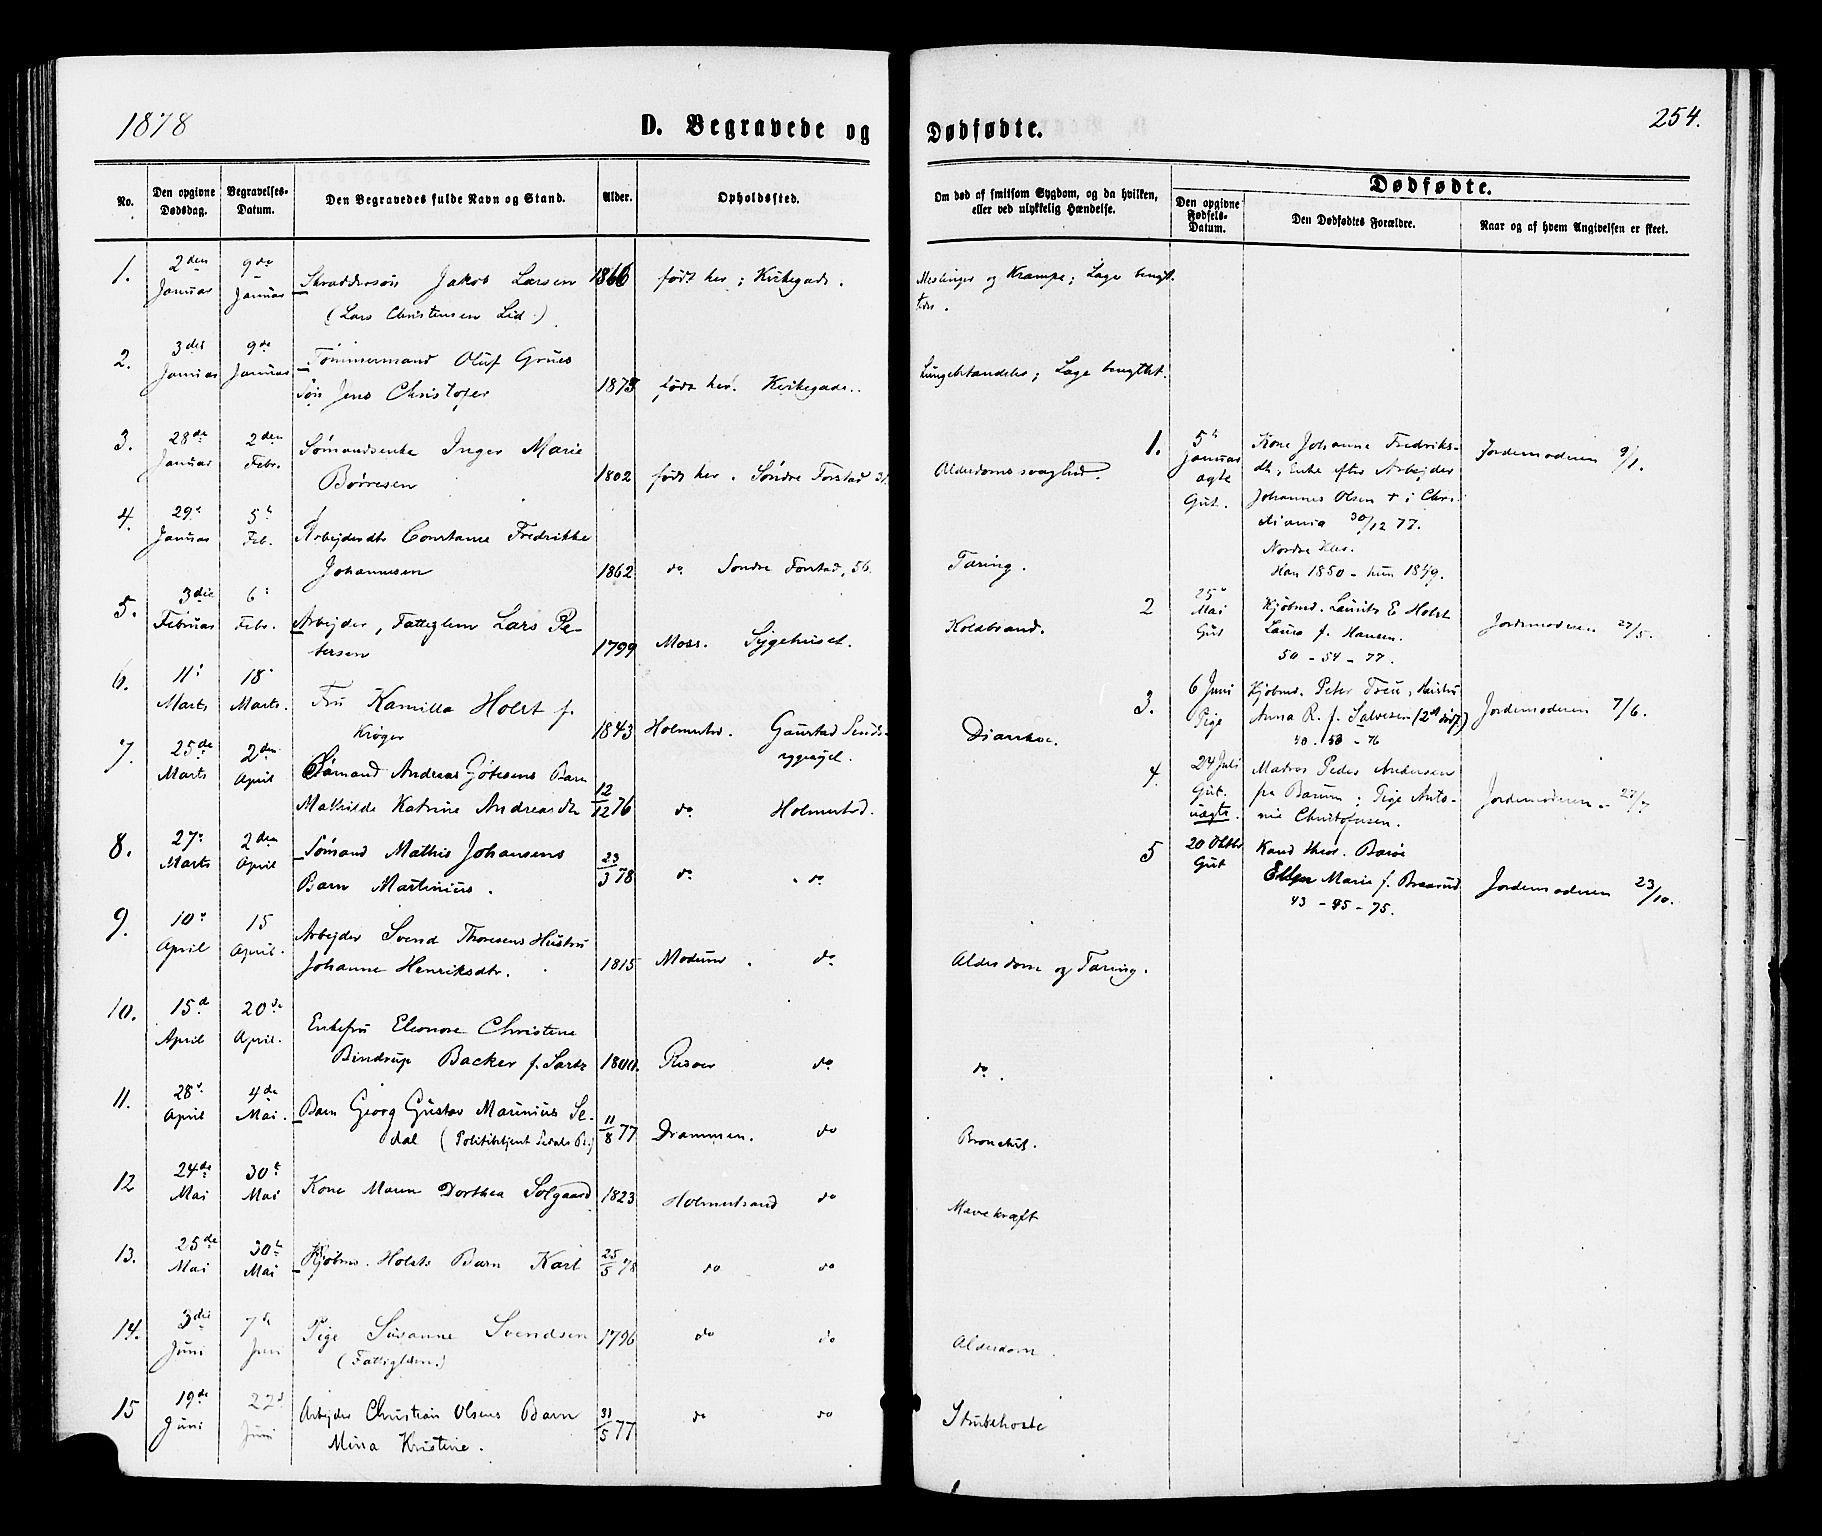 1878
D. Begravede og Dødfødte.
254.
No.
Den opgivne Dødsdag.
Begravelses-Datum.
Den Begravedes fulde Navn og Stand.
Alder.
Opholdssted.
Om død af smitsom Sygdom, og da hvilken, eller ved ulykkelig Hændelse.
Dødfødte.
Den opgivne Fødsels-Datum.
Den Dødfødtes Forældre.
Naar og af hvem Angivelsen er skeet.
1. 2den Januar 9de Januar Skræddersøn Jakob Larsen 1866 født her; Kirkegade. Meslinger og Krampe; Læge benyt.
(Lars Christensen Lid.) tes.
2. 3die Januar 9de Januar Tømmermand Oluf Grues
Søn Jens Christofer 1873 født her. Kirkegade. Lungebetændelse; Læge benyttet.
3. 28de Januar 2den Febr. Sømandsenke Inger Marie
Børresen 1802 født her. Søndre Forstad 31. Alderdomssvaghed.
4. 29e Januar 5te Feb. Arbejderdtr Constance Fredrikke
Johannesen 1862 do Søndre Forstad, 56. Tæring.
5. 3die Februar 6e Febr. Arbejder, Fattiglem Lars Pe-
tersen 1799 Moss. Sygehuset. Koldbrand.
6. 11e Marts 18e Marts. Fru Kamilla Holst f.
Krøger 1843 Holmestrd. Gaustad Sinds-
sygeasyl. Diarrhoe.
7. 25de Marts 2den April Sømand Andreas Gjøtesens Barn
Mathilde Katrine Andreasdtr 12/12 76 do Holmestrd.
8. 27e Marts 2den April Sømand Mathis Johansens
Barn Martinius. 23/3 78 do do
9. 10e April 15 April. Arbejder Svend Thoresens Hustru
Johanne Henriksdtr. 1815 Modum. do Alderdom og Tæring.
10. 15d April 20de April. Enkefru Eleonore Christine
Bindrup Backer f. Sartz 1800. Risøer do do.
11. 28e April 4de Mai. Barn Georg Gustav Marinius Se-
dal (Politibetjent Sedals B.) 11/8 77 Drammen. do Bronchit.
12 24de Mai 30te Mai Kone Maren Dorthea Solgaard 1823 Holmestrand do Mavekræft
13. 25de Mai 30te Mai Kjøbm. Holsts Barn Karl 25/5 78 do do
14. 3die Juni 7de Juni Pige Susanne Svendsen 1796 do do Alderdom.
(Fattiglem.)
15 19de Juni 22d Juni Arbejder Christian Olsens Barn
Mina Kristine. 31/5 77 do do Strubehoste
1. 5te Januar ægte Gut. Kone Johanne Fredriks-
dtr, Enke efter Arbejder
Johannes Olsen + i Chri-
stiania 30/12 77.
Nordre
Han 1850 - hun 1849. Jordemoderen 9/1.
2 25e Mai Gut Kjøbmd. Laurits E Holst
Laura f. Hansen.
50 - 54 - 77. Jordemoderen 27/5.
3. 6 Juni Pige Kjøbmd. Peter Treu, Hustru
Anna R. f. Salvesen (2det dødf.)
40. 50 - 76 Jordemoderen 7/6.
4. 24 Juli Gut. uægte. Matros Peder Andersen
fra Bærum; Pige Anto-
nie Christofersen. Jordemoderen 27/7
5 20 Oktbr Gut Kand theol. Barøe
Ellen Marie f. Braarud
43 - 45 - 75. Jordemoderen 23/10.